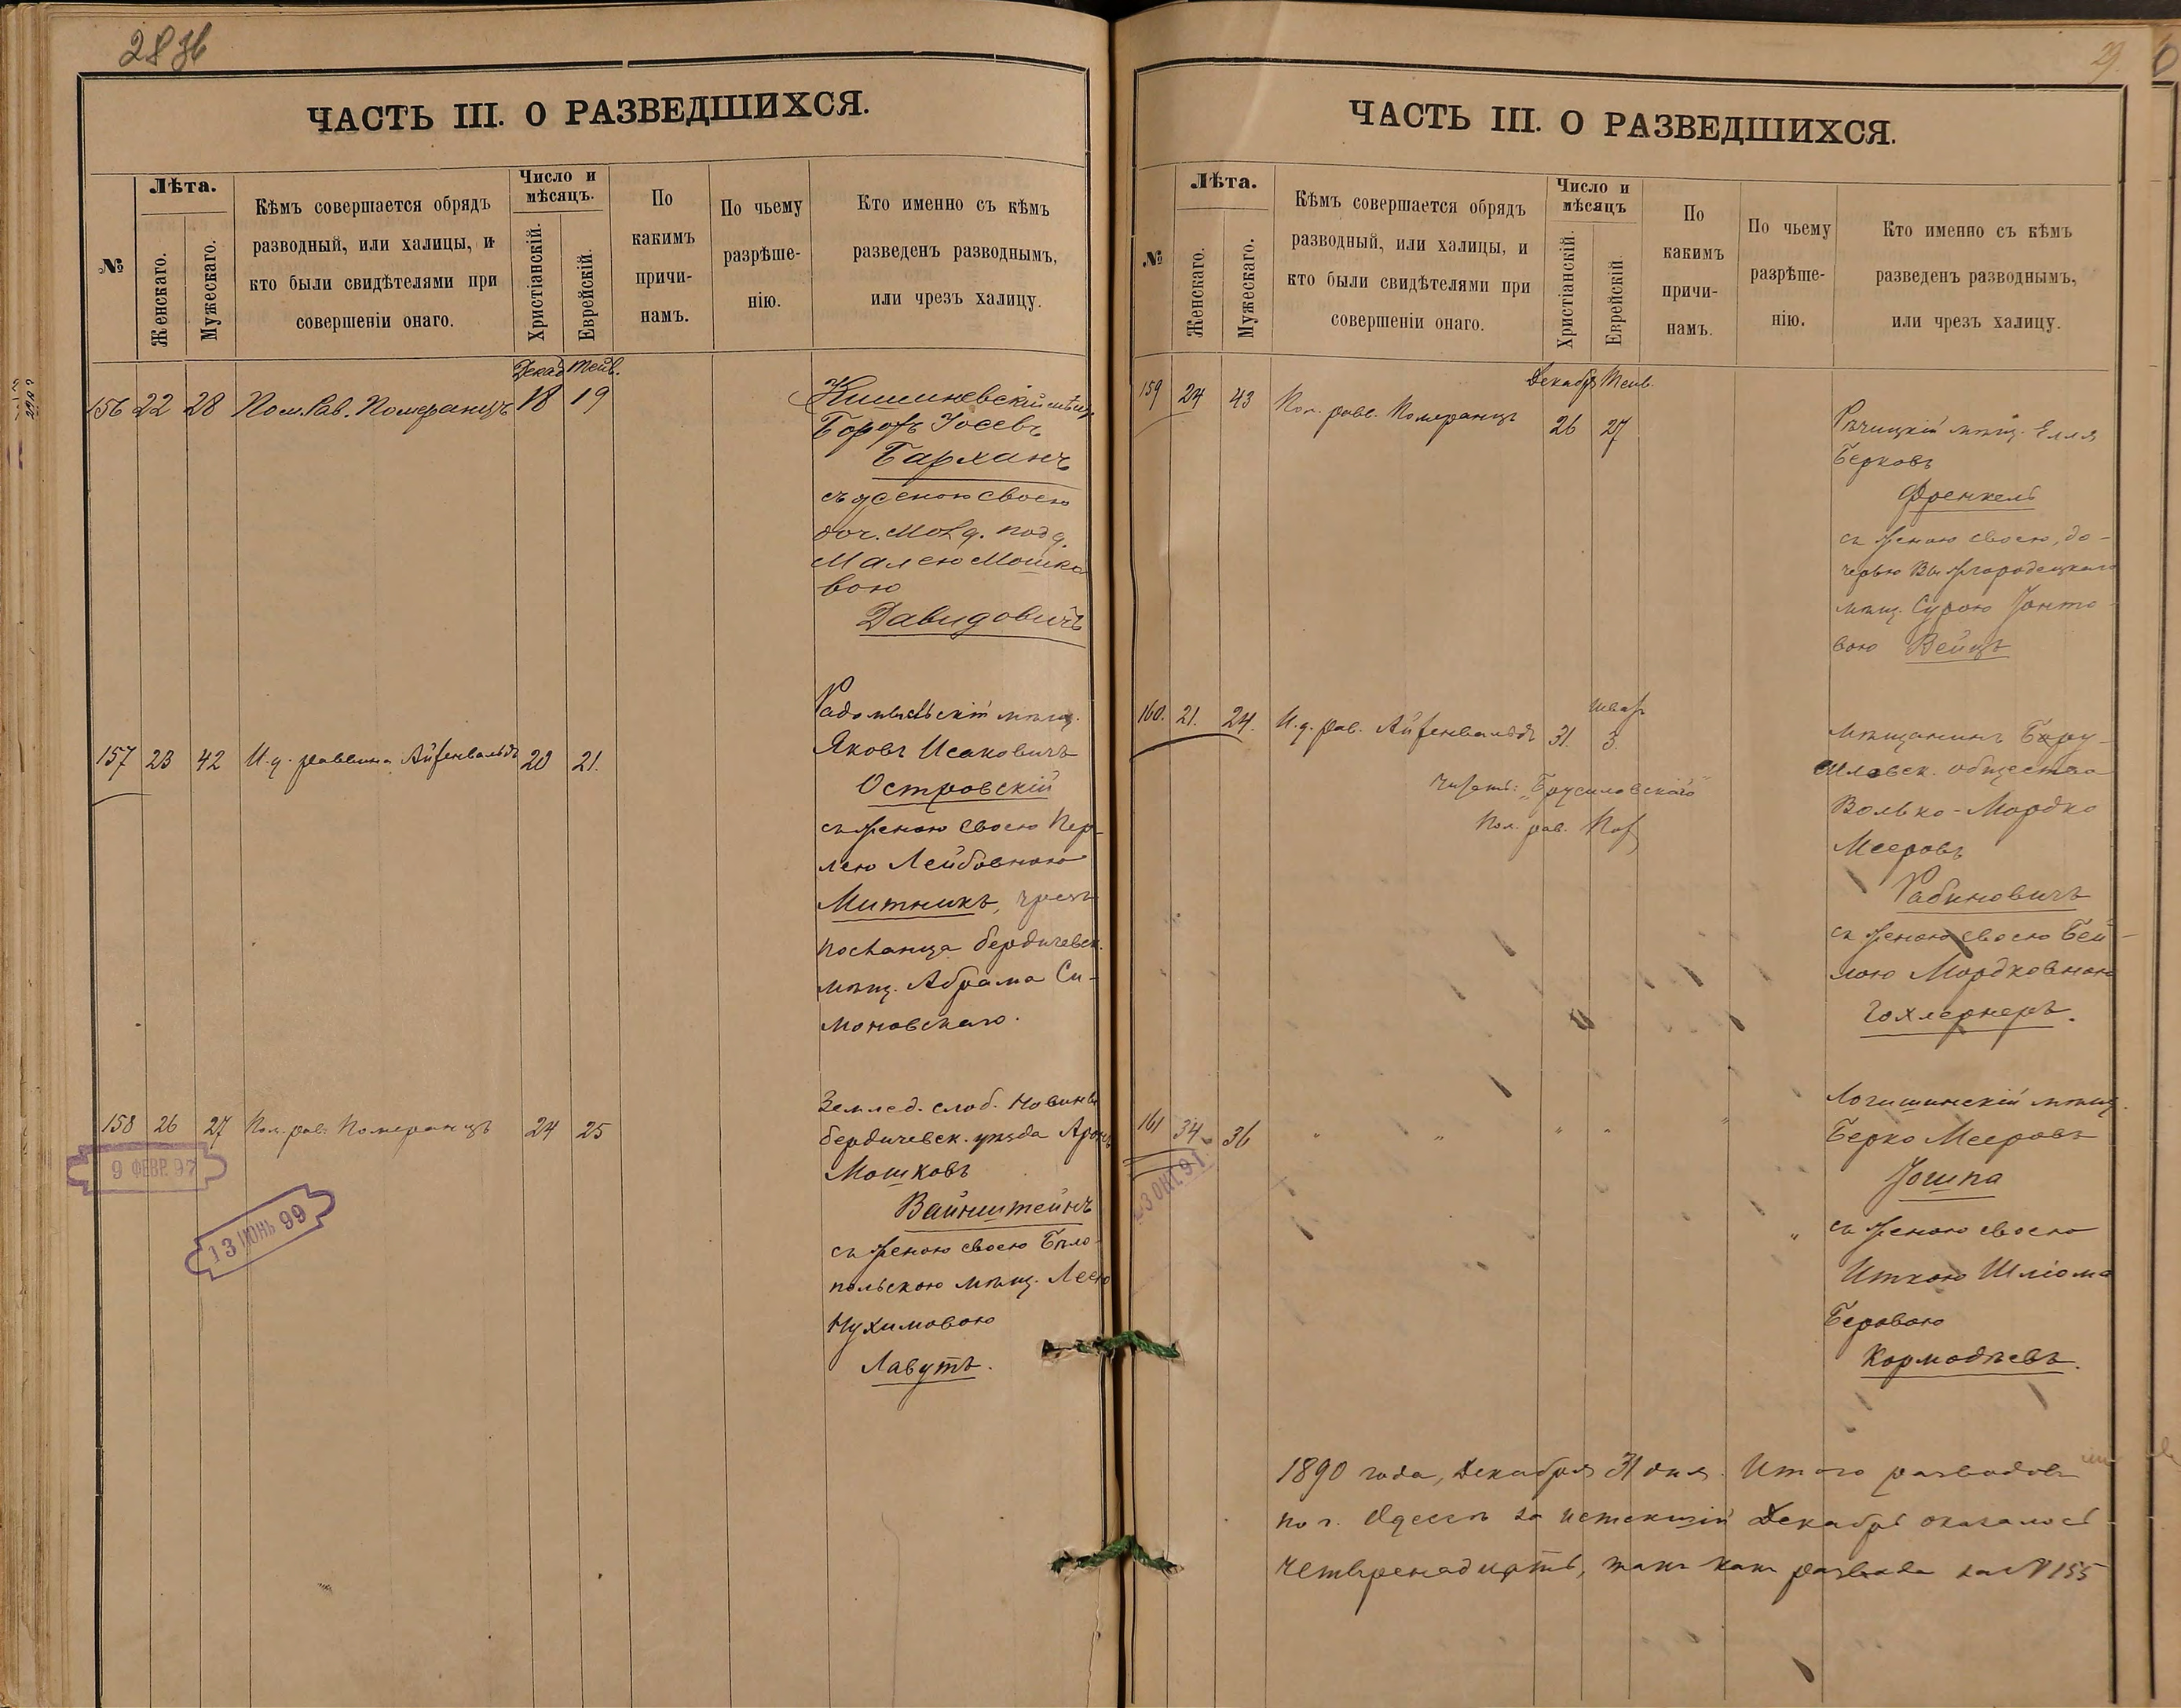 28 зб
ЧАСТЬ III. О РАЗВЕДШИХСЯ.
№
Лѣта.
Женскаго.
Мужескаго.
Кѣмъ совершается обрядъ
разводный, или халицы, и
кто были свидѣтелями при
совершеніи онаго.
Число и
мѣсяцъ.
Христіанскій.
Еврейскій.
По
какимъ
причи-
намъ.
По чьему
разрѣше-
нію.
Кто именно съ кѣмъ
разведенъ разводнымъ,
или чрезъ халицу.
Декаб Тейв.
156 22 28 Пом. Рав. Померанцъ 18 19
Кишиневскій мѣщ
Борохъ Іосевъ
Барханъ
съ женою своею
доч. Молд. подд.
Малею Мошко
вою
Давидовичъ
157 23 42 И. д. раввина Айзенвальдъ 20 21.
Радомысльскій мѣщ.
Яковъ Исаковичъ
Островскій
съ женою своею Пер-
лею Лейбовною
Митникъ, чрезъ
посланца бердичевск.
мѣщ. Абрама Си-
моновскаго.
158 26 27 Пом. рав. Померанцъ 24 25
Землед. слоб. Новинки
бердичевск. уѣзда Аронъ
Мошковъ
Вайнштейнъ
съ женою своею Бѣло-
польскою мѣщ. Леею
Нухимовою
Лавутъ.
9 ФЕВР. 97
13 ИЮНЬ 99
29
ЧАСТЬ III. О РАЗВЕДШИХСЯ.
№
Лѣта.
Женскаго.
Мужескаго.
Кѣмъ совершается обрядъ
разводный, или халицы, и
кто были свидѣтелями при
совершеніи онаго.
Число и
мѣсяцъ
Христіанскій.
Еврейскій.
По
какимъ
причи-
намъ.
По чьему
разрѣше-
нію.
Кто именно съ кѣмъ
разведенъ разводнымъ,
или чрезъ халицу.
Декабря Тейв.
159 24 43 Пом. равв. Померанцъ 26 27
Рѣчицкій мѣщ. Елля
Берковъ
Френкель
съ женою своею, до-
черью Вышгородецкаго
мѣщ. Сурою Іонто-
вою Вейцъ
Шват
160. 21. 24. И. д. рав. Айзенвальдъ 31. 3.
Читать: „Брусиловскаго"
Пом. рав.
Мѣщанинъ Бру-
силовск. общества
Волько-Мордко
Мееровъ
Рабиновичъ
съ женою своею Бей-
лою Мордковною
Гохлернеръ.
161 34 36 " " " " "
23 ОКТ. 91
Логишинскій мѣщ.
Берко Мееровъ
Іошпа
" съ женою своею
Иткою Шліома
Беровою
Кормодѣевъ.
1890 года, Декабря 31 дня. Итого разводовъ
по г. Одессѣ за истекшій Декабрь оказалось
четырнадцать, такъ какъ развода за № 155